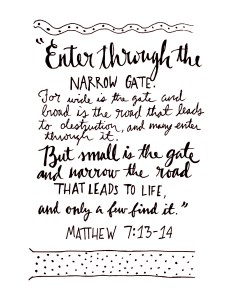 "Enter through the
NARROW GATE.
For wide is the gate and
broad is the road that leads
to destruction, and many enter
through it.
But small is the gate
and narrow the road
THAT LEADS TO LIFE,
and only a few find it."
MATTHEW 7:13-14